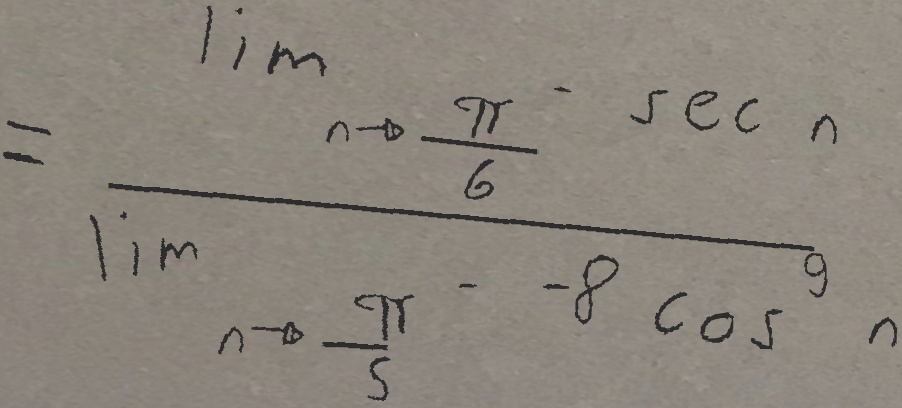 = \frac{\lim_{n \to \frac{\pi}{6}^-} \sec n}{\lim_{n \to \frac{\pi}{5}^-} -8 \cos^9 n}